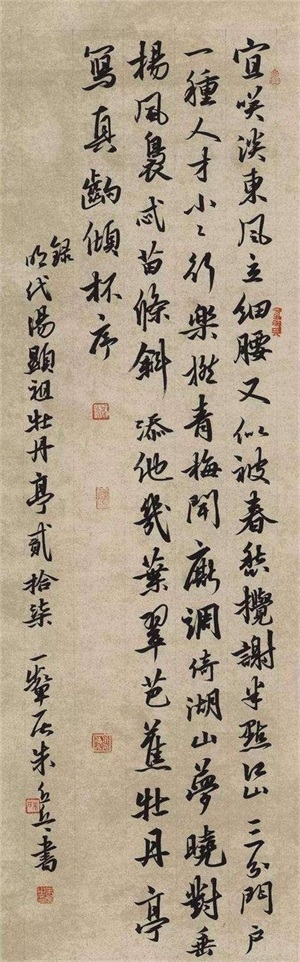 宜咲淡東風立細腰又似被春愁攪謝半點江山三分門户
一種人才小〻行樂撚青梅閒廝調倚湖山夢曉對垂
楊風裊忒苗條斜添他幾葉翠芭蕉牡丹亭
寫真齣傾杯序
録
明代湯顯祖牡丹亭貳拾柒 一居朱書